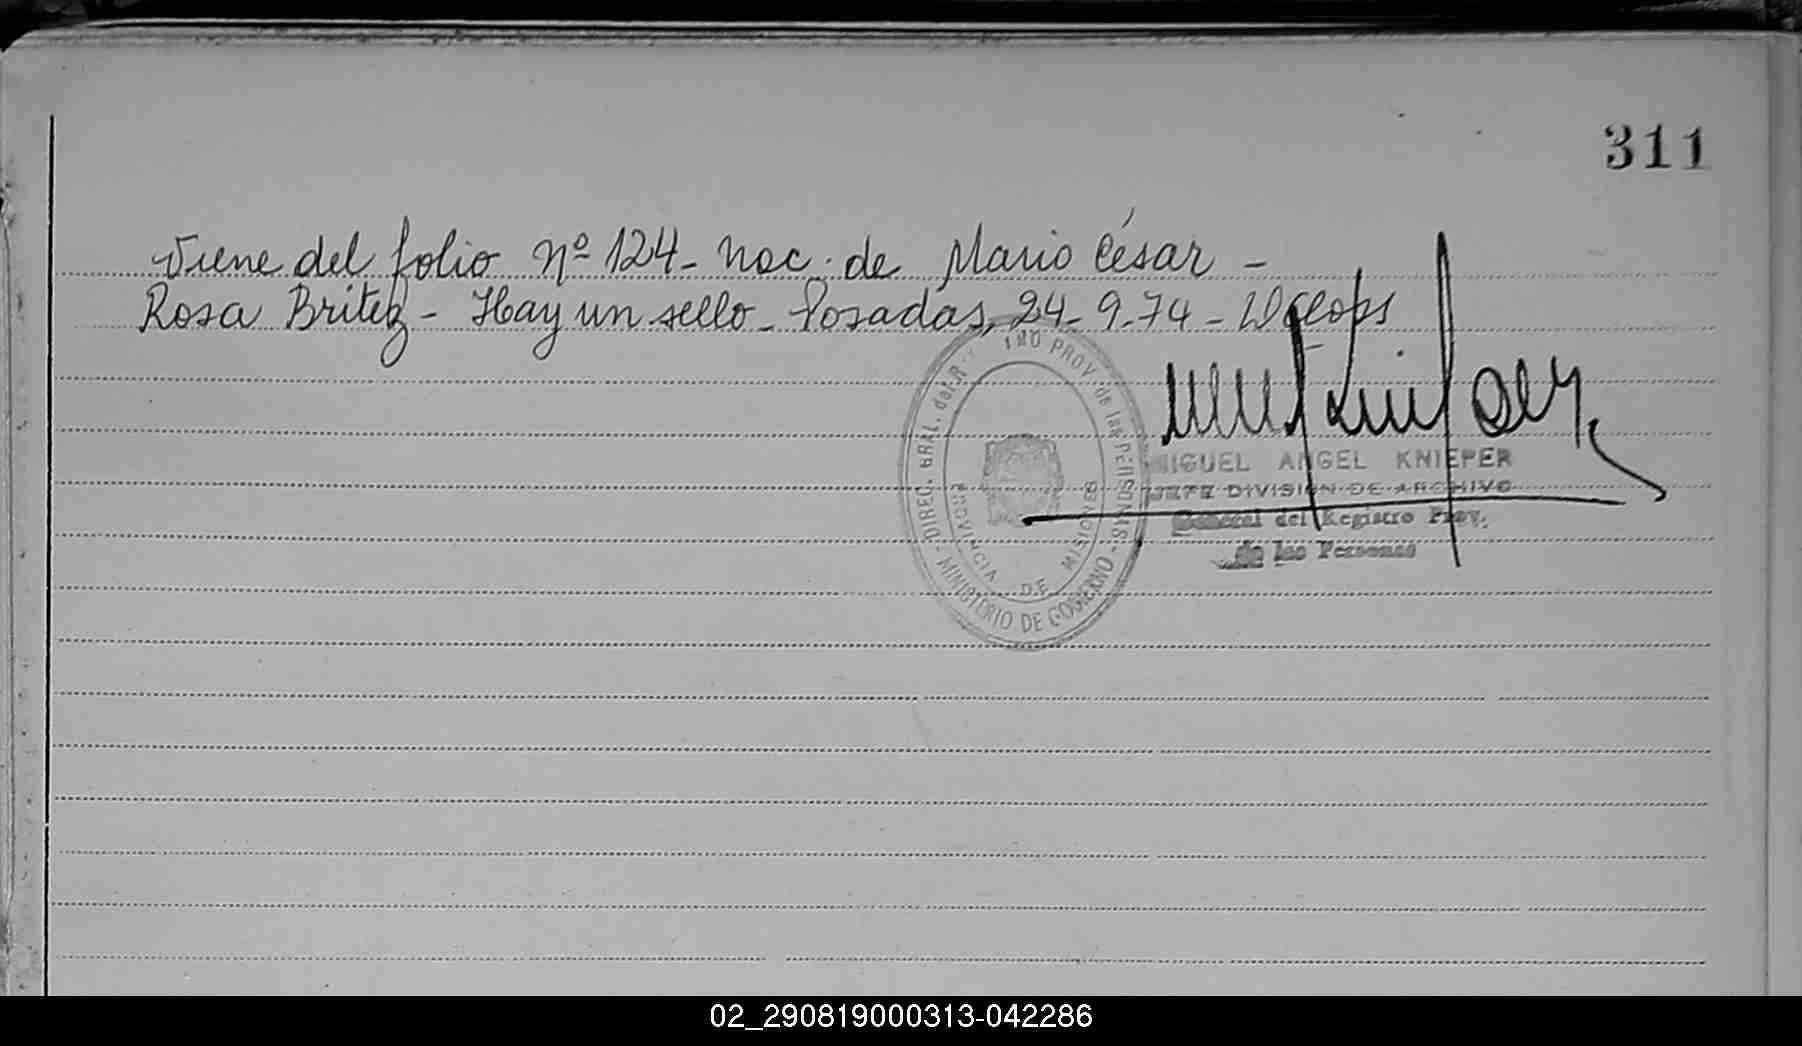 311
Viene del folio Nº 124 - Nac. de Mario César -
Rosa Britez - Hay un sello - Posadas, 24-9-74 -
DIREC. GRAL. del R PROV de las PERSONAS - MINISTERIO DE GOBIERNO -
PROVINCIA DE MISIONES
MIGUEL ANGEL KNIEPER
JEFE DIVISION DE ARCHIVO
General del Registro Prov.
de las Personas
02_290819000313-042286